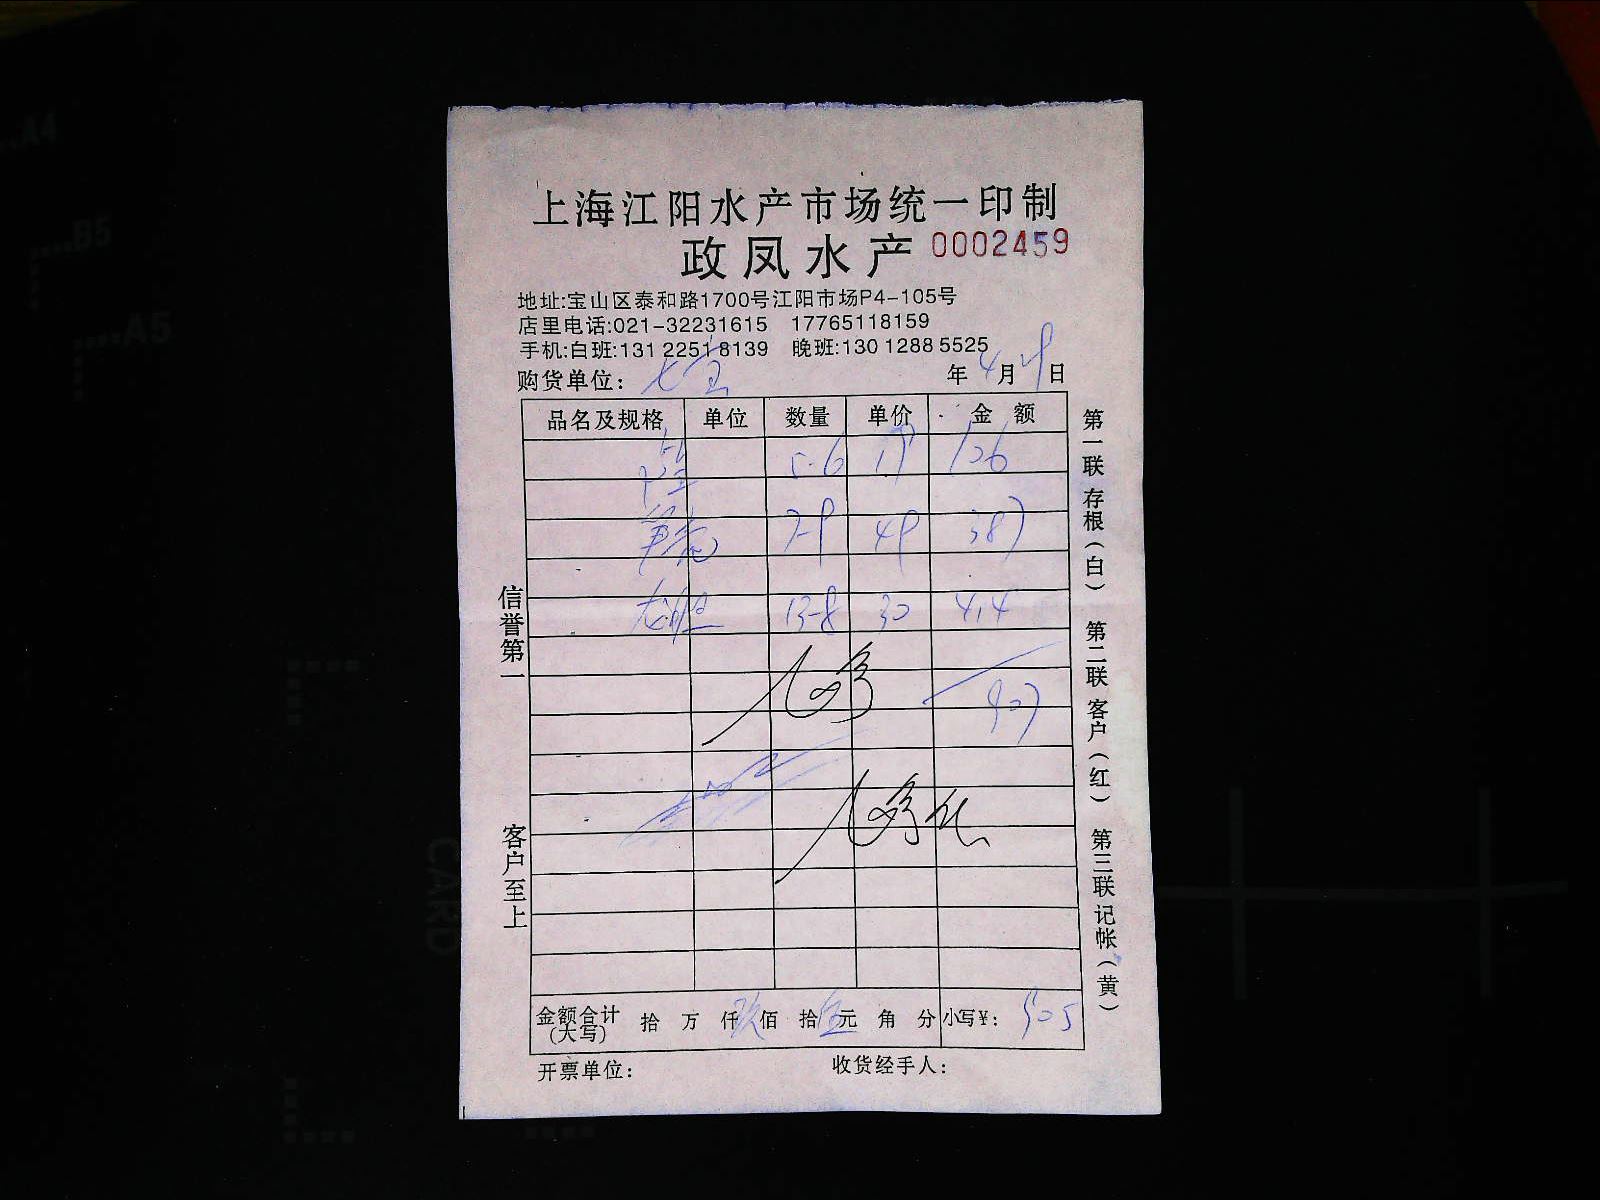 上海江阳水产市场统一印制
政凤水产 0002459
地址:宝山区泰和路1700号江阳市场P4-105号
店里电话:021-32231615 17765118159
手机:白班:131 2251 8139 晚班:130 1288 5525
购货单位: 七宝 年 4 月 日
品名及规格 单位 数量 单价 金额
5-6 106
7-9 49 387
龙胆 13-8 30 414
907
金额合计(大写) 拾 万 仟 玖 佰 拾 伍 元 角 分 小写¥: 905
开票单位: 收货经手人:
信誉第一
客户至上
第一联 存根(白) 第二联 客户(红) 第三联 记帐(黄)
A4
B5
A5
CARD